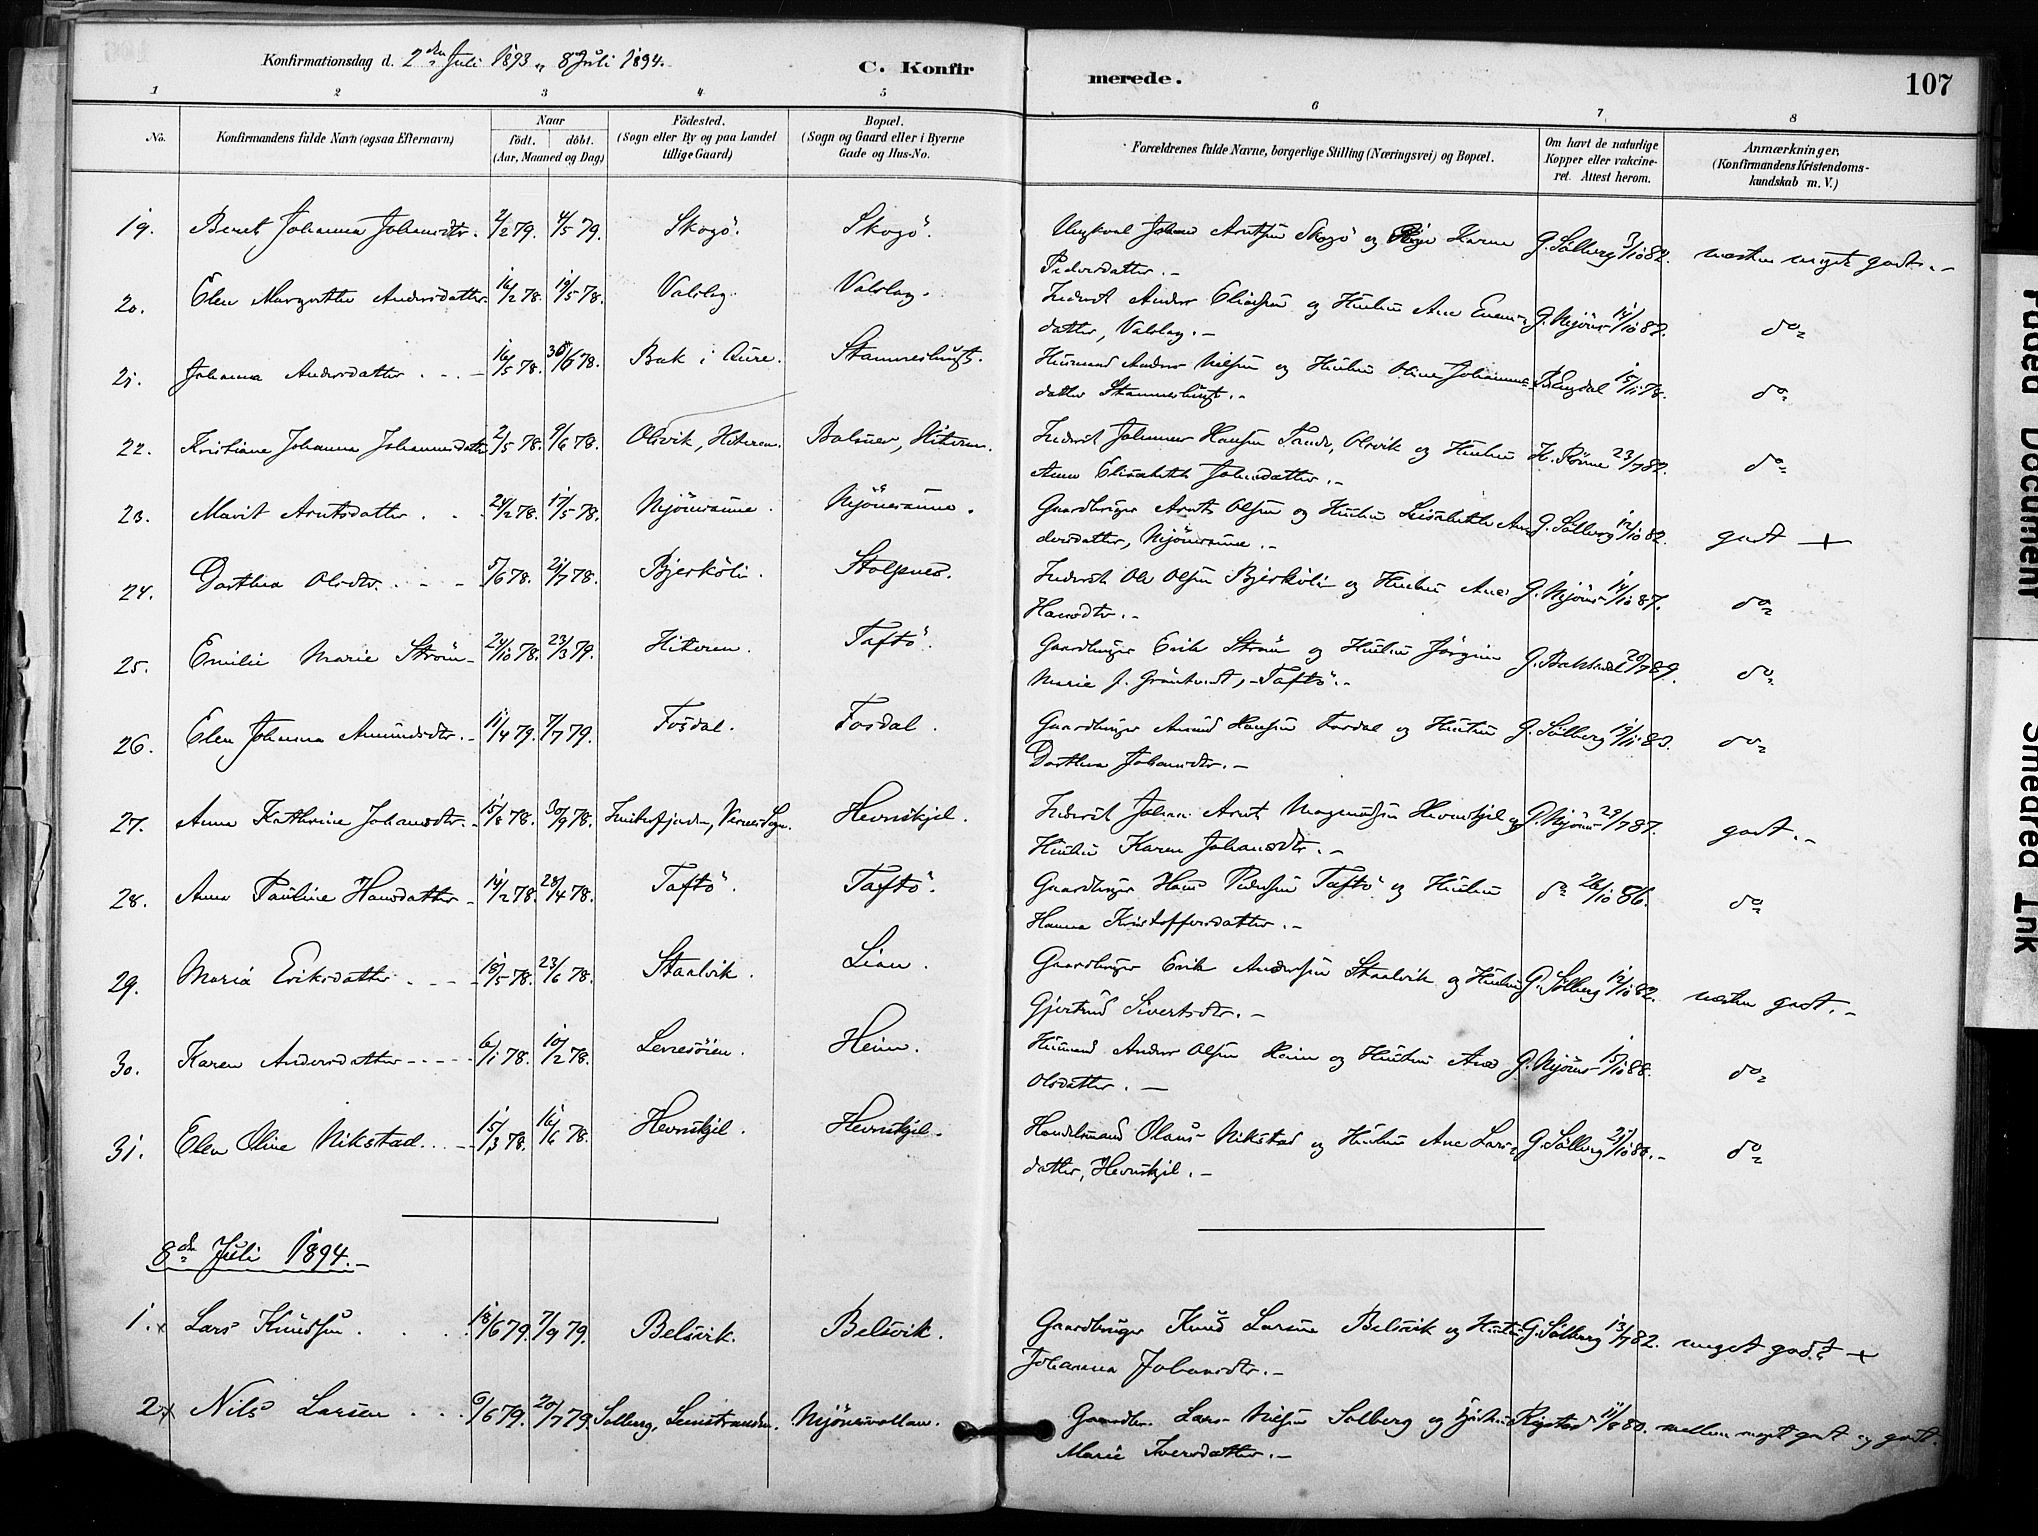 Konfirmationsdag d. 2den Juli 1893 „ 8 Juli 1894.
C. Konfir
merede.
107
1 2 3 4 5 6 7 8
No.
Konfirmandens fulde Navn (ogsaa Efternavn)
Naar
födt. döbt.
(Aar, Maaned og Dag)
Födested.
(Sogn eller By og paa Landet
tillige Gaard)
Bopæl.
(Sogn og Gaard eller i Byerne
Gade og Hus-No.
Forældrenes fulde Navne, borgerlige Stilling (Næringsvei) og Bopæl.
Om havt de naturlige
Kopper eller vakcine-
ret. Attest herom.
Anmærkninger,
(Konfirmandens Kristendoms-
kundskab m. V.)
19. Beret Johanna Johansdtr. 2/2 79. 4/5 79. Skogö. Skogö. Ungkarl Johan Arntsen Skogö og Pige Karen G. Sölberg 3/10 82. næsten meget godt. -
Pedersdatter. -
20. Elen Margrethe Andersdatter 16/2 78. 19/5 78. Valslag. Valslag. Inderst Anders Eliassen og Hustru Ane Evens- G. Mjönes 14/10 87. do
datter, Valslag. -
21. Johanna Andersdatter. - - - 16/5 78. 30/6 78. Bak i Aure. Stamneshaugt. Husmand Anders Nielsen og Hustru Oline Johannes- B. Engdal 15/11 78. do
datter Stamneshaugt. -
22. Kristiane Johanna Johannesdatter 2/5 78. 9/6 78. Olsvik, Hiteren. Balsnes, Hiteren. Inderst Johannes Hansen Trede, Olsvik og Hustru H. Röme 23/7 82. do
Anne Elisabeth Johnsdatter. -
23. Marit Arntsdatter. - - 24/2 78. 17/5 78. Mjönesaune. Mjönesaune. Gaardbruger Arnt Olsen og Hustru Lisabeth An- G. Sölberg 12/10 82. godt +
dersdatter, Mjönesaune. -
24. Dorthea Olsdtr. - - - 5/6 78. 21/7 78. Bjerköli. Stolpnes. Inderst Ole Olsen Bjerköli og Hustru Ane G. Mjönes 14/10 87. do
Hansdtr. -
25. Emilie Marie Ström - 24/10 78. 23/3 79. Hiteren. Taftö. Gaardbruger Erik Ström og Hustru Jörgine G. 20/7 89. do
Marie J. Taftö. -
26. Elen Johanna Amundsdtr. - 11/4 79. 7/7 79. Fosdal. Fosdal. Gaardbruger Amund Hansen Fosdal og Hustru G. Sölberg 19/11 83. do
Dorthea Johansdtr. -
27. Anne Kathrine Johansdtr. 15/8 78. 30/9 78. Hevnskjel. Inderst Johan Arnt Magnussen Hevnskjel og G. Mjönes 29/7 87. godt. -
Hustru Karen Johansdtr. -
28. Anne Pauline Hansdatter - 14/2 78. 28/4 78. Taftö. Taftö. Gaardbruger Hans Pedersen Taftö og Hustru do 26/10 86. do
Hanna Kristoffersdatter. -
29. Maria Eriksdatter. - - - 18/5 78. 23/6 78. Staalvik. Lian. Gaardbruger Erik Andersen Staalvik og Hustru G. Sölberg 12/10 82. næsten godt. -
Gjertrud Sivertsdtr. -
30. Karen Andersdatter - - - - 6/1 78. 10/2 78. Lernesöien. Heim. Husmand Anders Olsen Heim og Hustru Ane G. Mjönes 15/10 88. do
Olsdatter. -
31. Elen Oline Nikstad. - - - 15/3 78. 16/6 78. Hevnskjel. Hevnskjel. Handelsmand Olaus Nikstad og Hustru Ane Lars- G. Sölberg 21/10 80. - do
datter, Hevnskjel. -
8de Juli 1894. -
1. x Lars Knudsen. . . . 18/6 79. 7/9 79. Belsvik. Belsvik. Gaardbruger Knud Larsen Belsvik og Hustru G. Sölberg 13/7 82. meget godt +
Johanna Johansdtr. -
2. x Nils Larsen . . . 9/6 79. 20/7 79. Solberg, Leinstranden. Mjönesvollan. Gaardbr. Lars Nielsen Solberg og Hustru 11/8 80. mellem meget godt og godt.
Marie Iversdatter. -
Faded Document
Smeared Ink